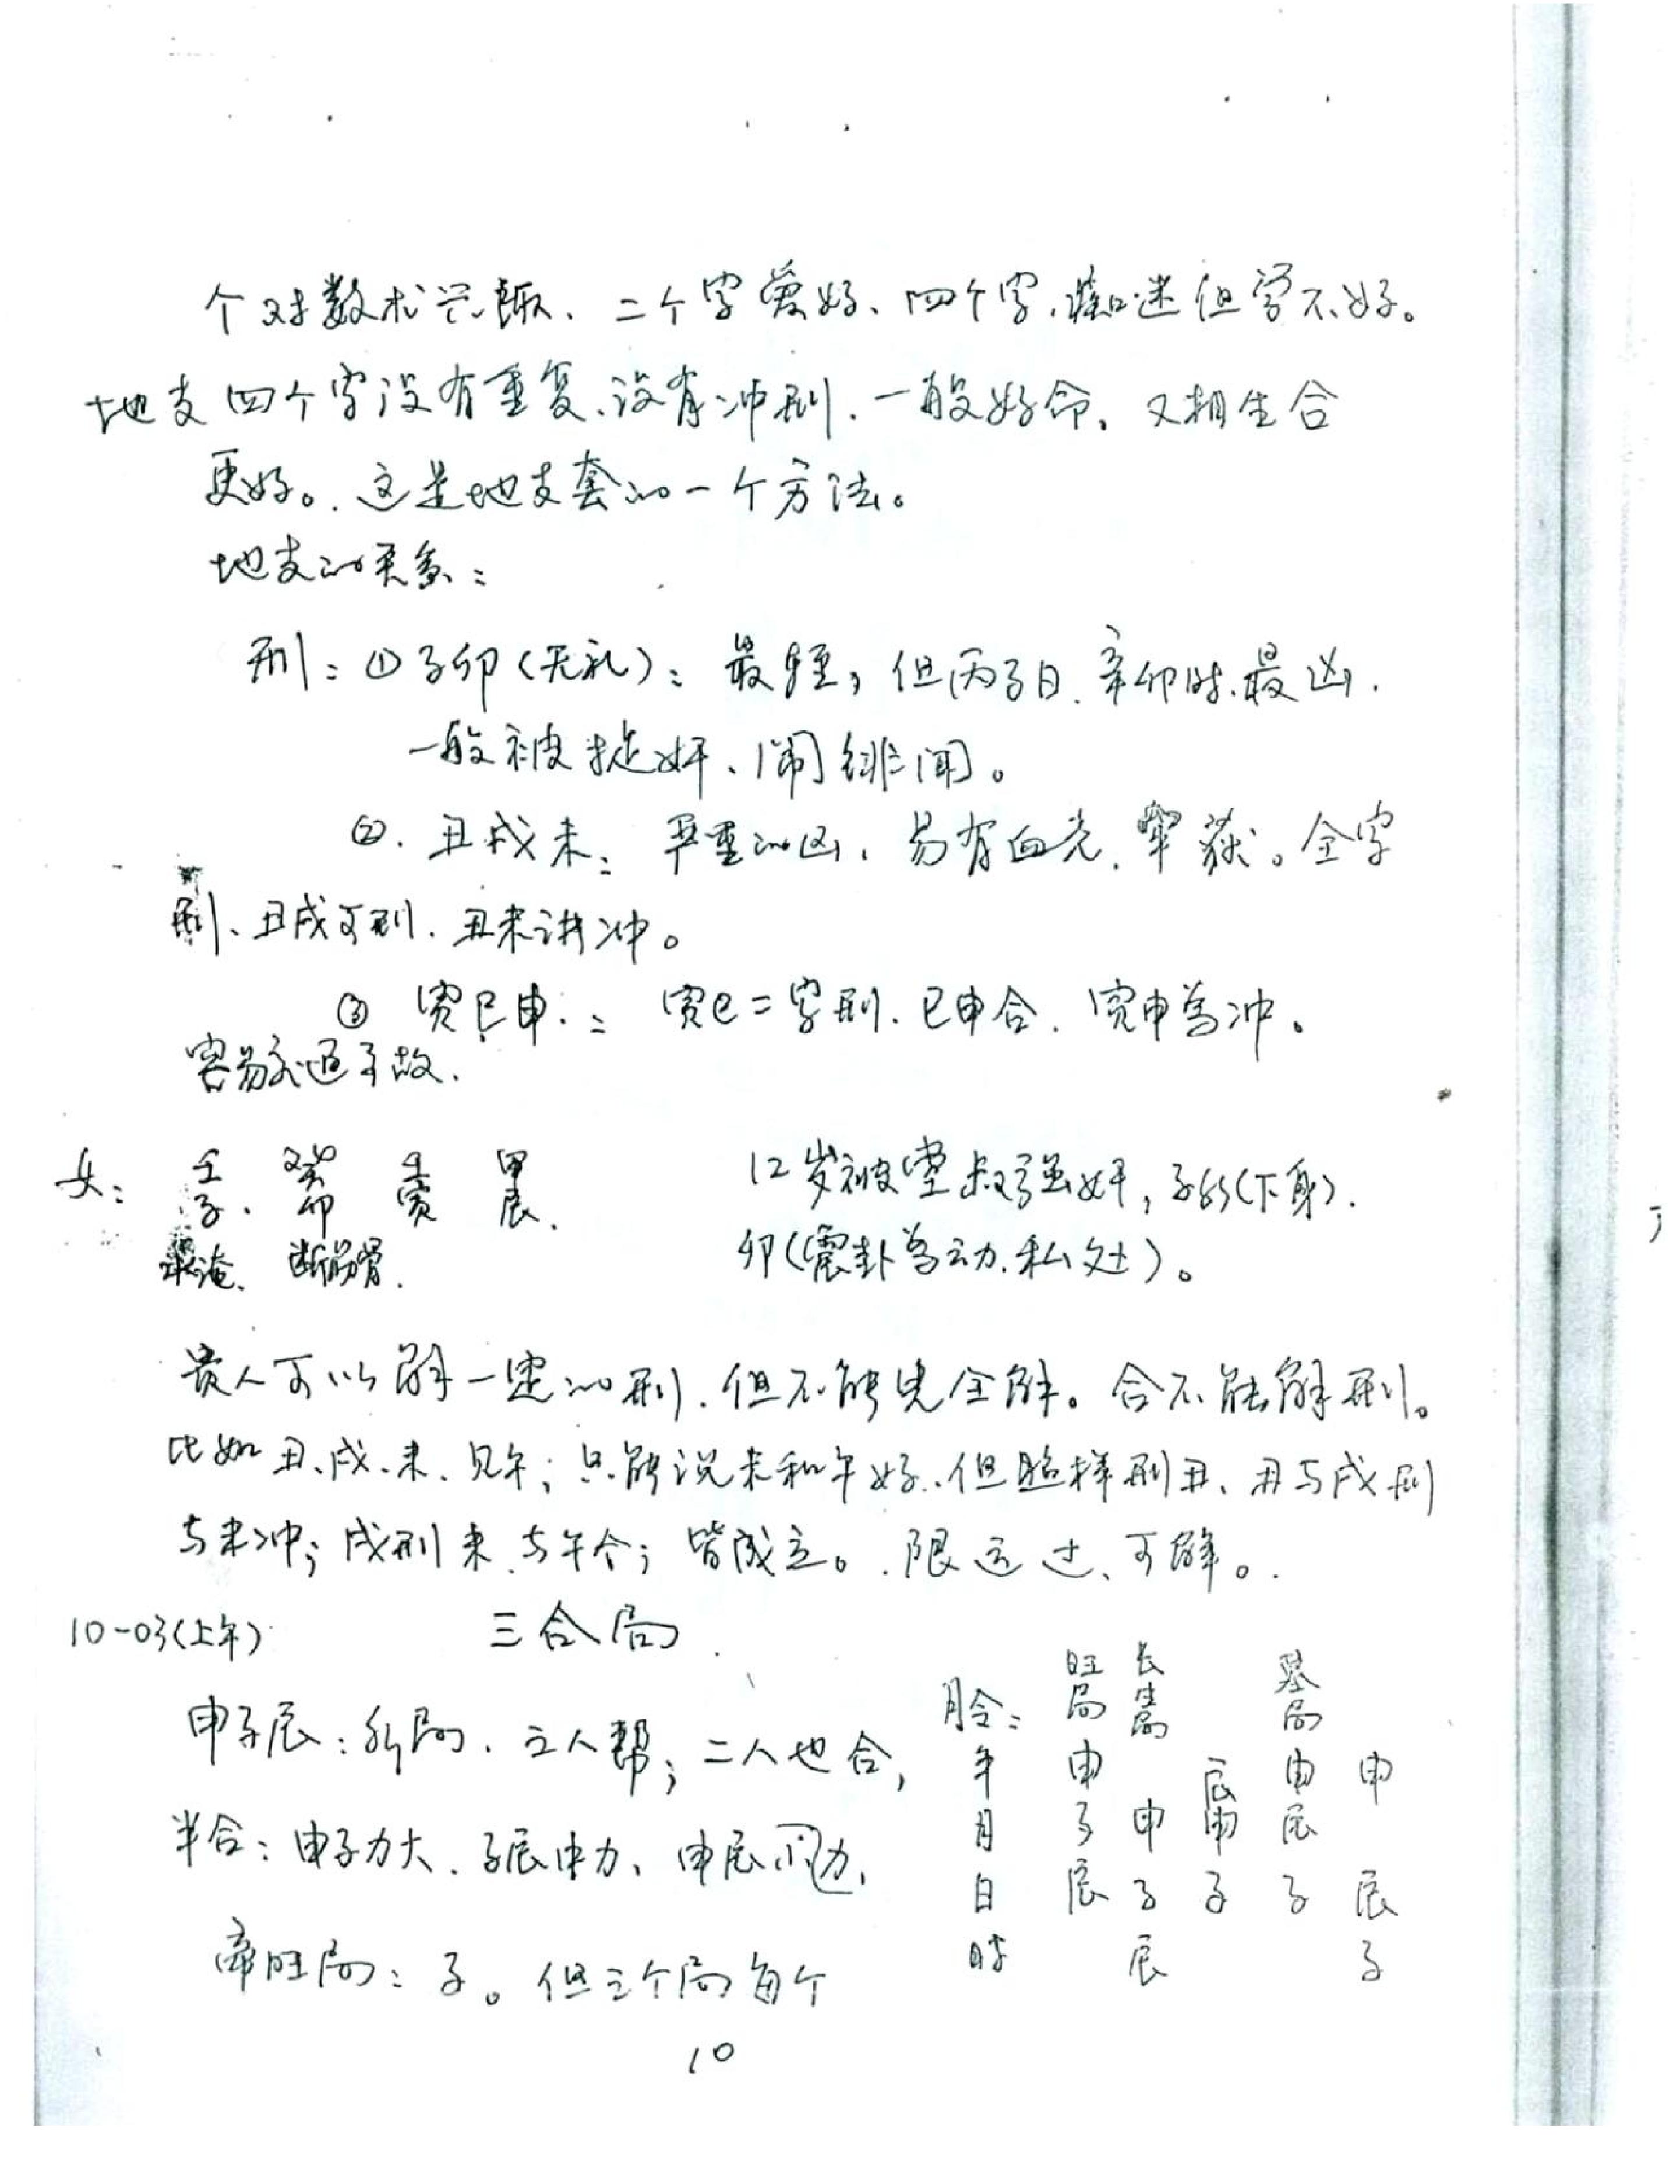 个对数术兴趣、二个字爱好、四个字、痴迷但学不好。
地支四个字没有重复、没有冲刑、一般好命、又相生合
更好。这是地支套的一个方法。
地支的关系：
刑：①子卯（无礼）：最轻，但丙子日、辛卯时、最凶．
一般被捉奸、闹绯闻。
②．丑戌未：严重的凶、易有血光、牢狱。全字
刑、丑戌可刑．丑未讲冲。
③ 寅巳申：寅巳二字刑．巳申合．寅申为冲。
容易交通事故．
女：壬子．癸卯 壬寅 甲辰．
水淹．断筋骨．
12岁被堂叔强奸，子水（下身）．
卯（震卦为动．私处）。
贵人可以解一定的刑．但不能完全解。合不能解刑。
比如丑、戌、未、见午；只能说未和午好、但照样刑丑、丑与戌刑
与未冲；戌刑未、与午合；皆成立。限运过、可解。
10-03（上午） 三合局
申子辰：水局．三人帮；二人也合，
半合：申子力大．子辰中力、申辰 力，
帝旺局：子。但三个局每个
月令：年 月 日 时
旺局 申 子 辰
长生局 申 子 辰
辰 申 子
墓局 申 辰 子
申 辰 子
10